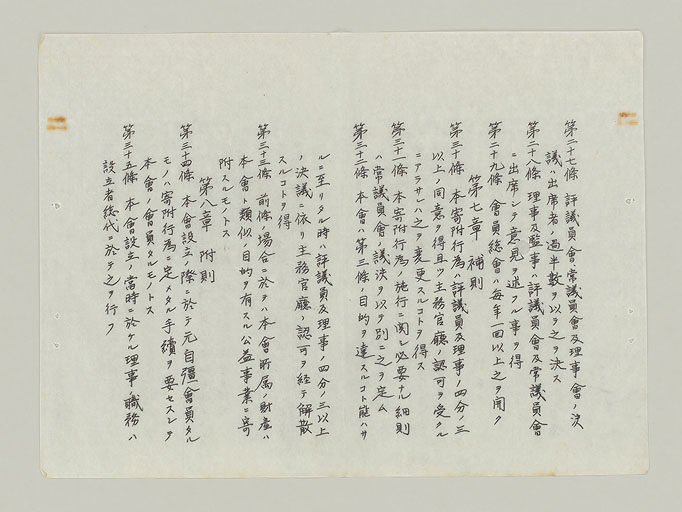 第二十七條 評議員會常議員會及理事會ノ決
議ハ出席者ノ過半數ヲ以テ之ヲ決ス
第二十八條 理事及監事ハ評議員會及常議員會
ニ出席シテ意見ヲ述フル事ヲ得
第二十九條 會員總會ハ每年一回以上之ヲ開ク
第七章 補則
第三十條 本寄附行為ハ評議員及理事ノ四分ノ三
以上ノ同意ヲ得且ツ主務官廳ノ認可ヲ受クル
ニアラサレハ之ヲ変更スルコトヲ得ス
第三十一條 本寄附行為ノ施行ニ関シ必要ナル細則
ハ常議員會ノ議決ヲ以テ別ニ之ヲ定ム
第三十二條 本會ハ第三條ノ目的ヲ達スルコト能ハサ
ルニ至リタル時ハ評議員及理事ノ四分ノ三以上
ノ決議ニ依リ主務官廳ノ認可ヲ経テ解散
スルコトヲ得
第三十三條 前條ノ場合ニ於テハ本會所属ノ財産ハ
本會ト類似ノ目的ヲ有スル公益事業ニ寄
附スルモノトス
第八章 附則
第三十四條 本會設立ノ際ニ於テ元自彊會員タル
モノハ寄附行為ニ定メタル手續ヲ要セスシテ
本會ノ會員タルモノトス
第三十五條 本會設立ノ當時ニ於ケル理事ノ職務ハ
設立者総代ニ於テ之ヲ行フ